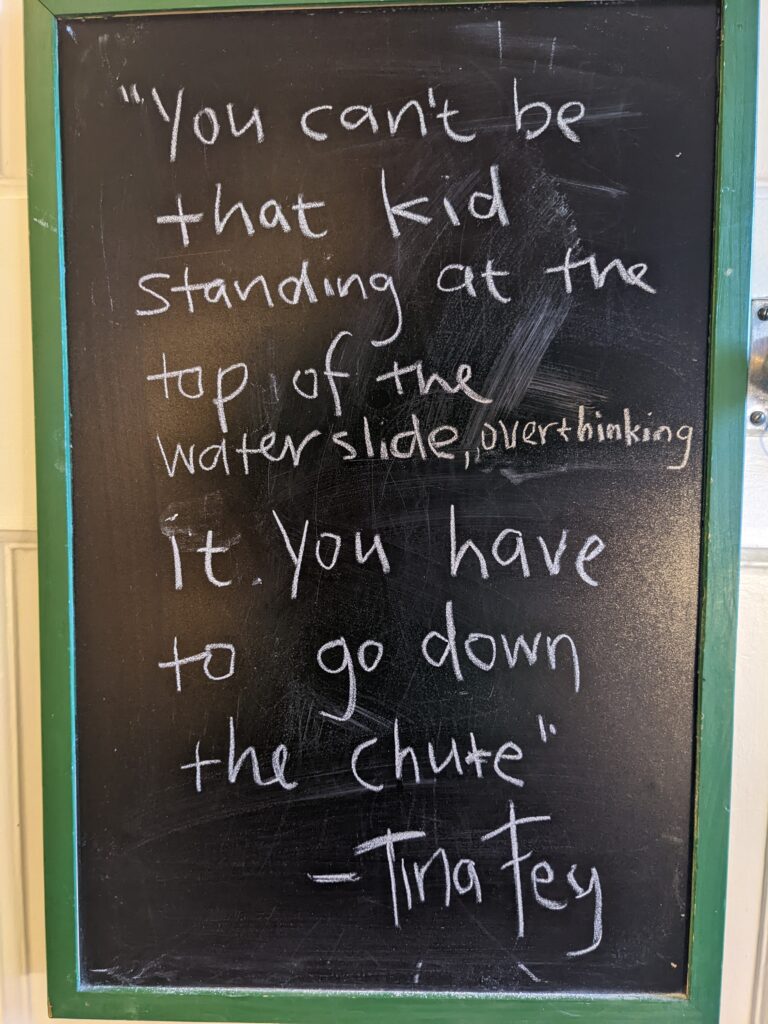 "You can't be
that kid
standing at the
top of the
waterslide, overthinking
it. You have
to go down
the chute"
- Tina Fey